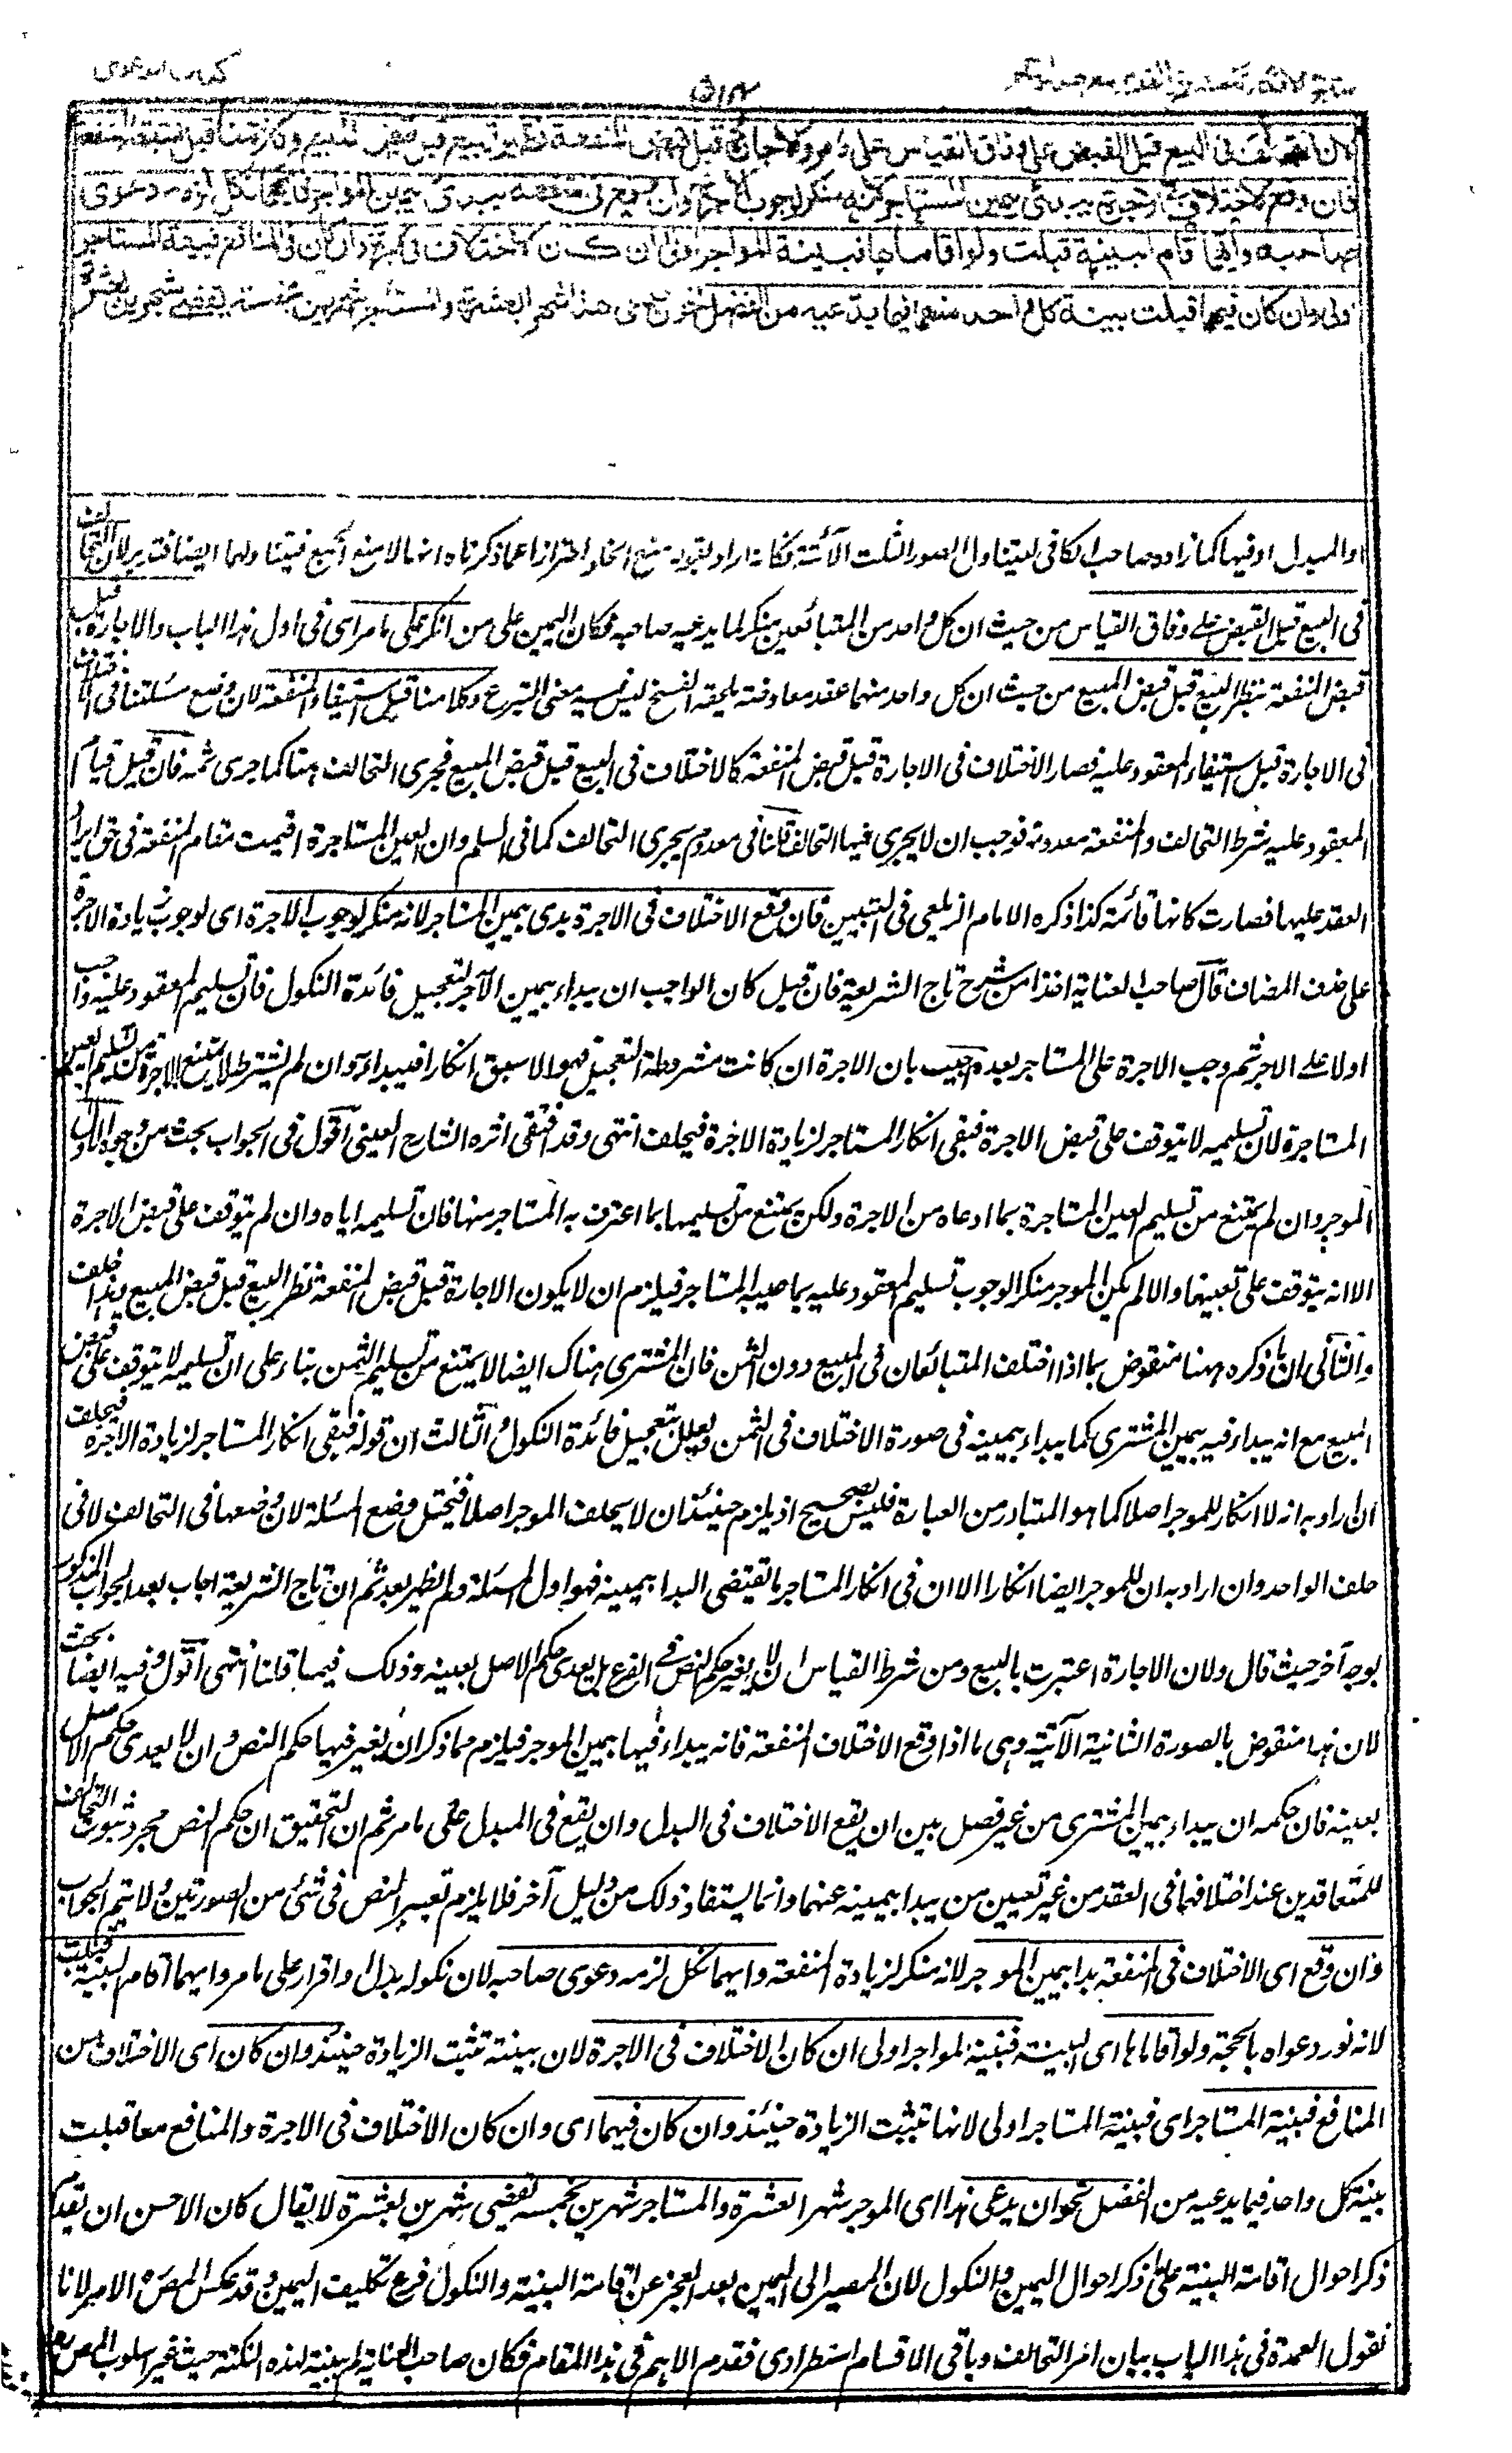 كتاب الدعوى
لان التحالف فى البيع قبل القبض على وفاق القياس على ما مر والاجارة قبل قبض المنفعة نظير البيع قبل قبض المبيع وكلامنا قبل استيفاء المنفعة
فان وقع الاختلاف فى الاجرة يبدئ بيمين المستاجر لانه منكر لوجوب الاجرة وان وقع فى المنفعة يبدئ بيمين المواجر فايهما نكل لزمه دعوى
صاحبه وايهما اقام البينة قبلت ولو اقاماها فبينة المواجر اولى ان كان الاختلاف فى الاجرة وان كان فى المنافع فبينة المستاجر
اولى وان كان فيهما قبلت بينة كل واحد منهما فيما يدعيه من الفضل نحو ان يدعى هذا شهرا بعشرة والمستاجر شهرين بخمسة يقضى شهرين بعشرة
او المبدل او فيهما كما زاده صاحب الكافى ليتناول الصور الثلث الآتية فكانه اراد بقوله منع الخلو احترازا عما ذكرناه انها لا منع الجمع فيتناولهما ايضا فتدبر لان التحالف
فى البيع قبل القبض على وفاق القياس من حيث ان كل واحد من المتبائعين منكر لما يدعيه صاحبه فكان اليمين على من انكر على ما مر اى فى اول هذا الباب والاجارة قبل
قبض المنفعة نظير البيع قبل قبض المبيع من حيث ان كل واحد منهما عقد معاوضة يلحقه الفسخ ليس فيه معنى التبرع وكلامنا قبل استيفاء المنفعة لان وضع مسئلتنا فى الاختلاف
فى الاجارة قبل استيفاء المعقود عليه فصار الاختلاف فى الاجارة قبل قبض المنفعة كالاختلاف فى البيع قبل قبض المبيع فجرى التحالف هنا كما جرى ثمه فان قيل قيام
المعقود عليه شرط التحالف والمنفعة معدومة فوجب ان لا يجرى فيها التحالف قلنا فى معدوم يجرى التحالف كما فى السلم وان العين المستاجرة اقيمت مقام المنفعة فى حق ايراد
العقد عليها فصارت كانها قائمة كذا ذكره الامام الزيلعى فى التبيين فان وقع الاختلاف فى الاجرة بدى بيمين المستاجر لانه منكر لوجوب الاجرة اى لوجوب زيادة الاجرة
على حذف المضاف قال صاحب العناية اخذا من شرح تاج الشريعة فان قيل كان الواجب ان يبداء بيمين الآجر لتعجيل فائدة النكول فان تسليم المعقود عليه واجب
اولا على الاجر ثم وجب الاجرة على المستاجر بعده اجيب بان الاجرة ان كانت مشروطة التعجيل فهو الاسبق انكارا فيبداء به وان لم يشترط لا يمتنع الاجر من تسليم العين
المستاجرة لان تسليمه لا يتوقف على قبض الاجرة فبقى انكار المستاجر لزيادة الاجرة فيحلف انتهى وقد اقتفى اثره الشارح العينى اقول فى الجواب بحث من وجوه الاول
الموجر وان لم يمتنع من تسليم العين المستاجرة بما ادعاه من الاجرة ولكن يمتنع من تسليمها بما اعترف به المستاجر منها فان تسليمه اياه وان لم يتوقف على قبض الاجرة
الا انه يتوقف على تعيينها والا لم يكن الموجر منكرا لوجوب تسليم المعقود عليه بما عينه المستاجر فيلزم ان لا يكون الاجارة قبل قبض المنفعة نظير البيع قبل قبض المبيع هذا خلف
والثانى ان ما ذكره ههنا منقوض بما اذا اختلف المتبائعان فى المبيع دون الثمن فان المشترى هناك ايضا لا يمتنع من تسليم الثمن بناء على ان تسليمه لا يتوقف على قبض
المبيع مع انه يبداء فيه بيمين المشترى كما يبداء بيمينه فى صورة الاختلاف فى الثمن ويعلل بتعجيل فائدة النكول والثالث ان قوله فبقى انكار المستاجر لزيادة الاجرة فيحلف
ان اراد به انه لا انكار للموجر اصلا كما هو المتبادر من العبارة فليس بصحيح اذ يلزم حينئذ ان لا يحلف الموجر اصلا فيختل وضع المسئلة لان وضعها فى التحالف لا فى
حلف الواحد وان اراد به ان للموجر ايضا انكارا الا ان فى انكار المستاجر ما يقتضى البدا بيمينه فهو اول المسئلة ولم يظهر بعد ثم ان تاج الشريعة اجاب بعد الجواب المذكور
بوجه آخر حيث قال ولان الاجارة اعتبرت بالبيع ومن شرط القياس ان لا يغير حكم النص فى الفرع بل يعدى حكم الاصل بعينه وذلك فيما قلنا انتهى اقول وفيه ايضا بحث
لان هذا منقوض بالصورة الثانية الآتية وهى ما اذا وقع الاختلاف فى المنفعة فانه يبداء فيها بيمين الموجر فيلزم مما ذكر ان يغير فيها حكم النص وان لا يعدى حكم الاصل
بعينه فان حكمه ان يبداء بيمين المشترى من غير فصل بين ان يقع الاختلاف فى البدل وان يقع فى المبدل على ما مر ثم ان التحقيق ان حكم النص مجرد ثبوت التحالف
للمتعاقدين عند اختلافهما فى العقد من غير تعيين من يبدا بيمينه عنهما وانما يستفاد ذلك من دليل آخر فلا يلزم تغيير النص فى شئ من الصورتين ولا يتم الجواب
وان وقع اى الاختلاف فى المنفعة بدا بيمين الموجر لانه منكر لزيادة المنفعة وايهما نكل لزمه دعوى صاحبه لان نكوله بذل او اقرار على ما مر وايهما اقام البينة قبلت
لانه نور دعواه بالحجة ولو اقاماها اى البينة فبينة المواجر اولى ان كان الاختلاف فى الاجرة لان بينته تثبت الزيادة حينئذ وان كان اى الاختلاف من
المنافع فبينة المستاجر اى فبينة المستاجر اولى لانها تثبت الزيادة حينئذ وان كان فيهما اى وان كان الاختلاف فى الاجرة والمنافع معا قبلت
بينة كل واحد فيما يدعيه من الفضل نحو ان يدعى هذا اى الموجر شهرا بعشرة والمستاجر شهرين بخمسة يقضى شهرين بعشرة لا يقال كان الاحسن ان يقدم
ذكر احوال اقامة البينة على ذكر احوال اليمين والنكول لان المصير الى اليمين بعد العجز عن اقامة البينة والنكول فرع تكليف اليمين وقد عكس المص ره الامر لانا
نقول العمدة فى هذا الباب بيان امر التحالف وباقى الاقسام استطرادى فقدم الاهم فى هذا المقام فكان صاحب العناية لم يتنبه لهذه النكتة حيث غير اسلوب المص